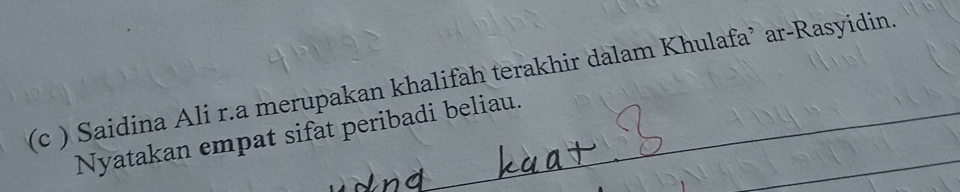 (c ) Saidina Ali r.a merupakan khalifah terakhir dalam Khulafa’ ar-Rasyidin.
Nyatakan empat sifat peribadi beliau.
yang kuat.